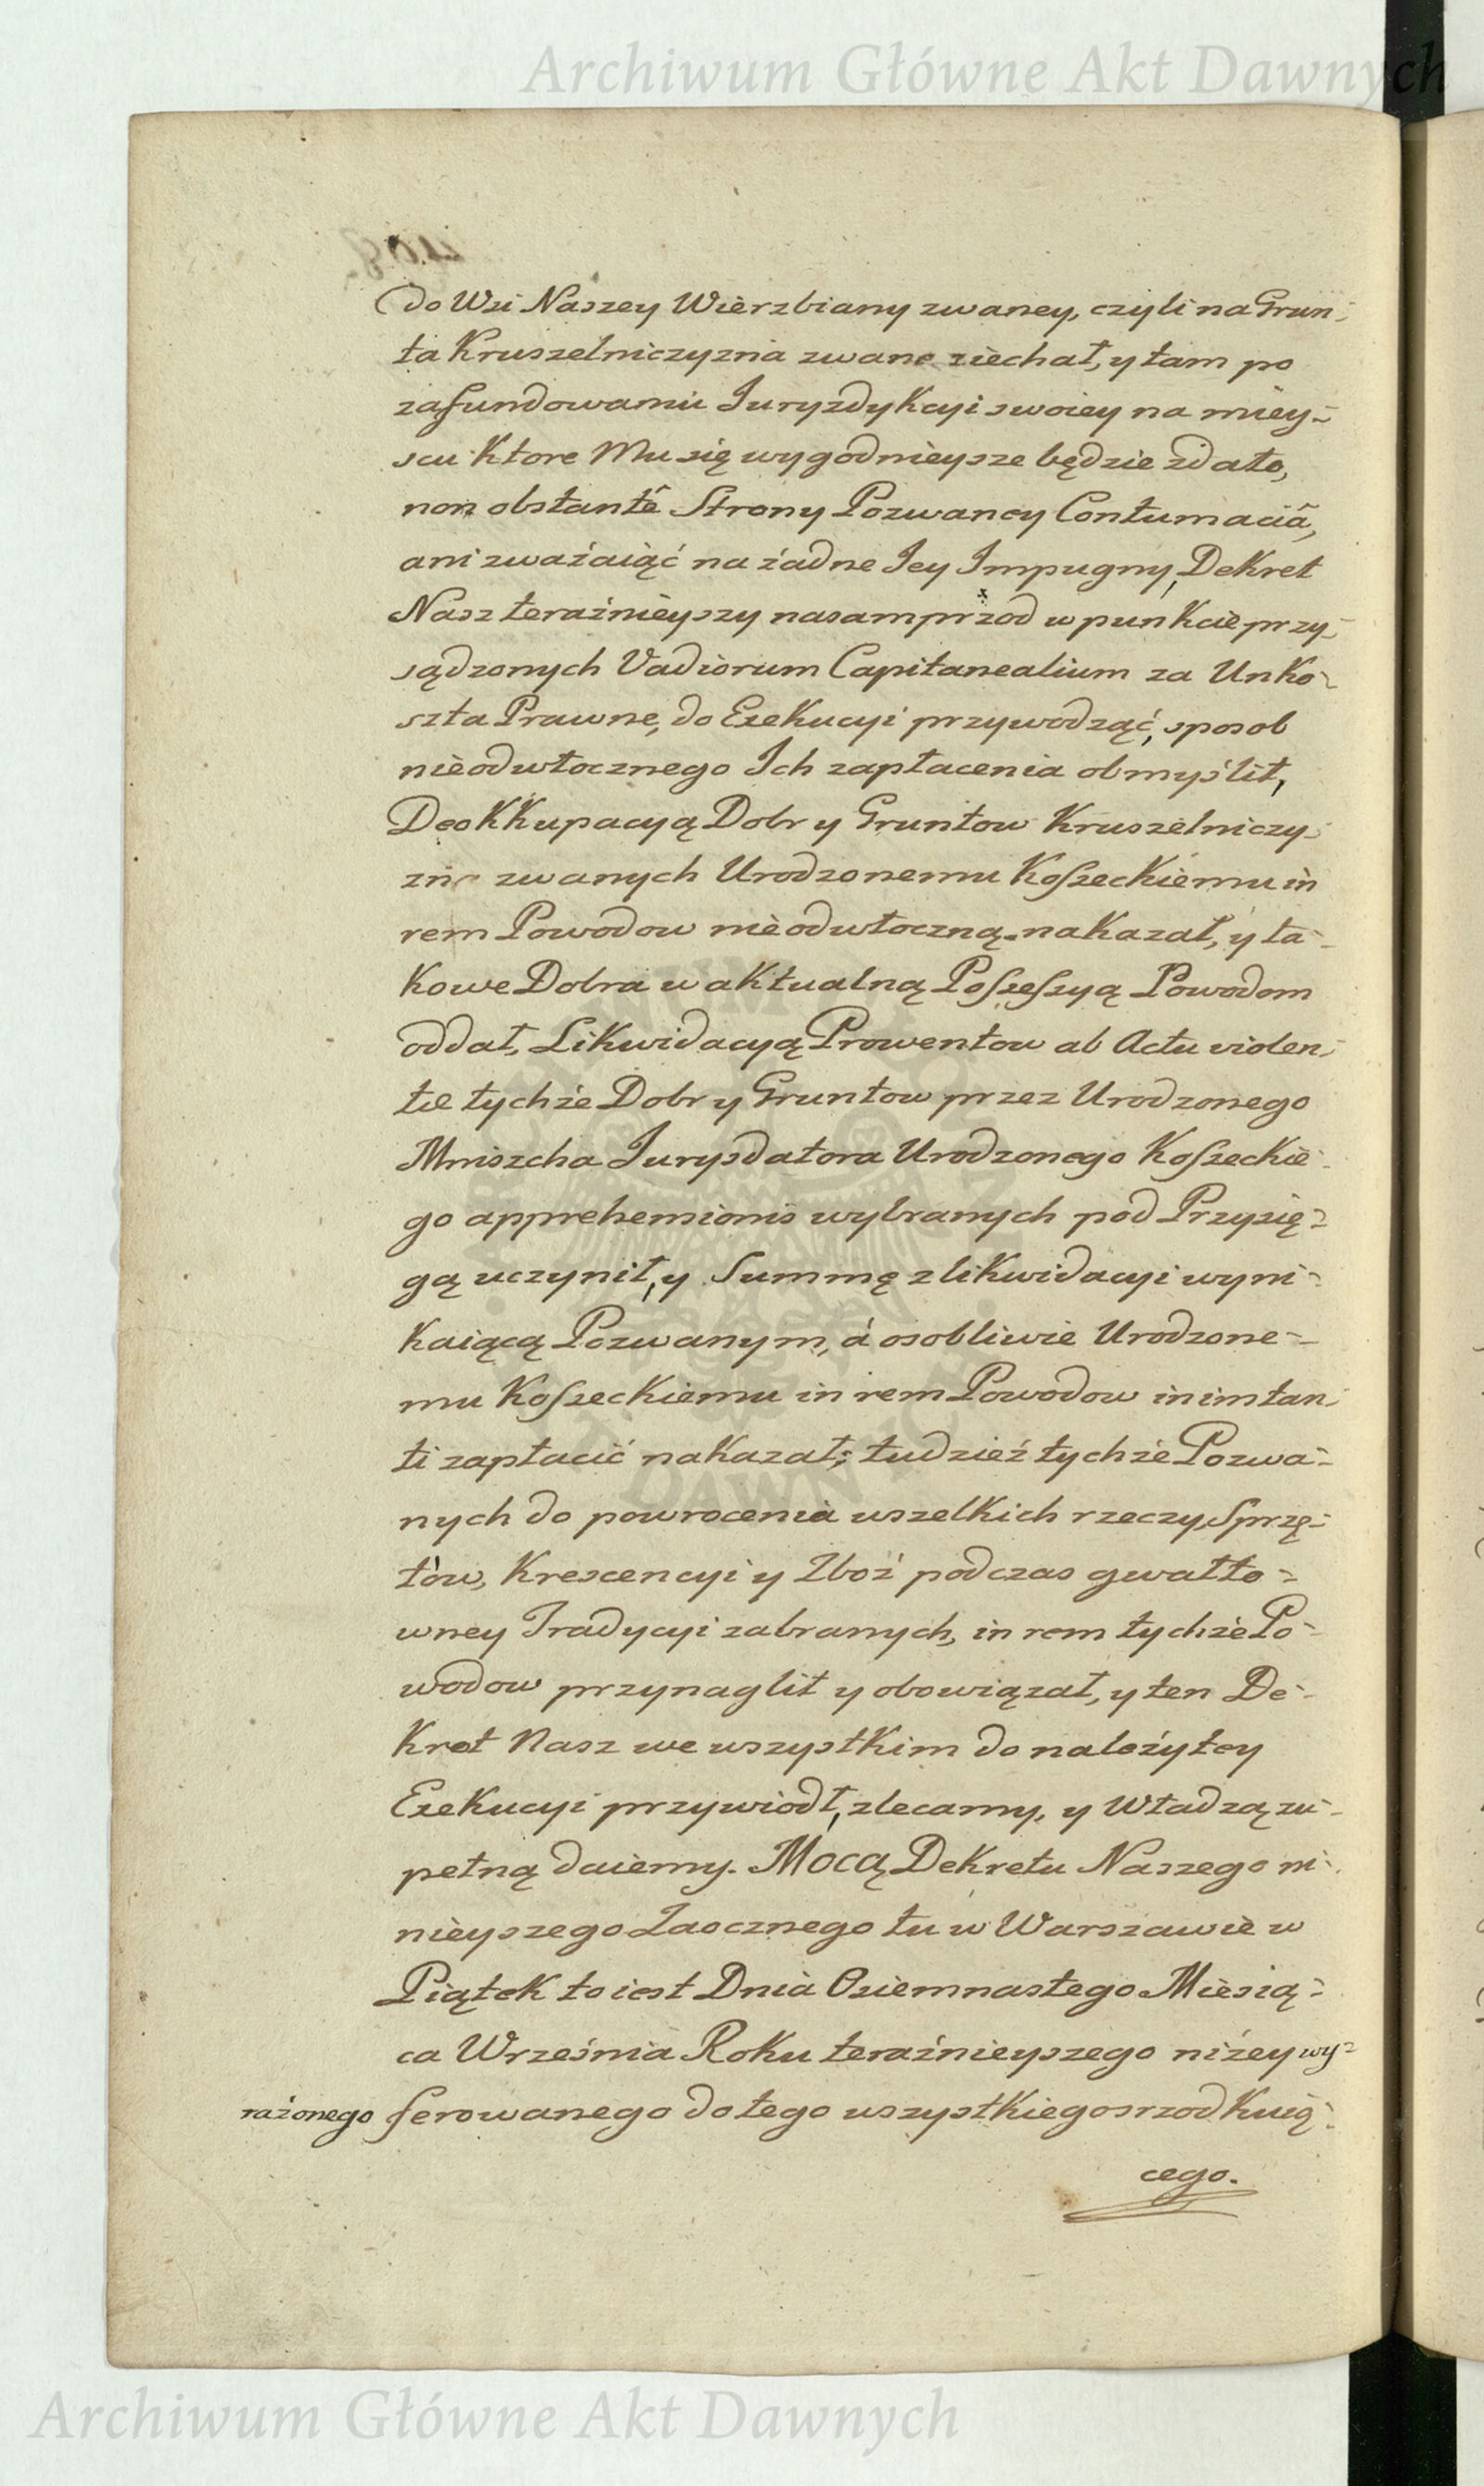 Archiwum Główne Akt Dawnych
do Wsi Naszey Wierzbiany zwaney, czyli na Grun-
ta Kruszelniczyzna zwane ziechał, y tam po
zafundowaniu Juryzdykcyi swoiey na miey-
scu Ktore Mu się wygodnieysze będzie zdało,
non obstantê Strony Pozwaney Contumaciâ,
ani zważaiąć na żadne Jey Impugny, Dekret
Nasz teraźnieyszy nasamprzod w punkcie przy-
sądzonych Vadiorum Capitanealium za Unko-
szta Prawne, do Exekucyi przywodząć, sposob
nieodwłocznego Ich zapłacenia obmyślił,
Deokkupacyą Dobr y Gruntow Kruszelniczy-
zna zwanych Urodzonemu Kosseckiemu in
rem Powodow nieodwłoczną nakazał, y ta-
kowe Dobra w aktualną Possessyą Powodom
oddał, Likwidacyą Prowentow ab Actu violen-
tæ tychże Dobr y Gruntow przez Urodzonego
Mniszcha Jurysdatora Urodzonego Kosseckie-
go apprehensionis wybranych pod Przysię-
gą uczynił, y Summę z likwidacyi wyni-
kaiącą Pozwanym, á osobliwie Urodzone-
mu Kosseckiemu in rem Powodow in instan-
ti zapłacić nakazał; tudzież tychże Pozwa-
nych do powrocenia wszelkich rzeczy, Sprzę-
tów, Krescencyi y Zboż podczas gwałto-
wney Tradycyi zabranych, in rem tychże Po-
wodow przynaglił y obowiązał, y ten De-
kret Nasz we wszystkim do należytey
Exekucyi przywiodł, zlecamy, y Władzą zu-
pełną daiemy. Mocą Dekretu Naszego ni-
nieyszego Zaocznego tu w Warszawie w
Piątek to iest Dnia Osiemnastego Miesią-
ca Września Roku teraźnieyszego niżey wy-
rażonego ferowanego do tego wszystkiego srzodkuią-
cego.
Archiwum Główne Akt Dawnych